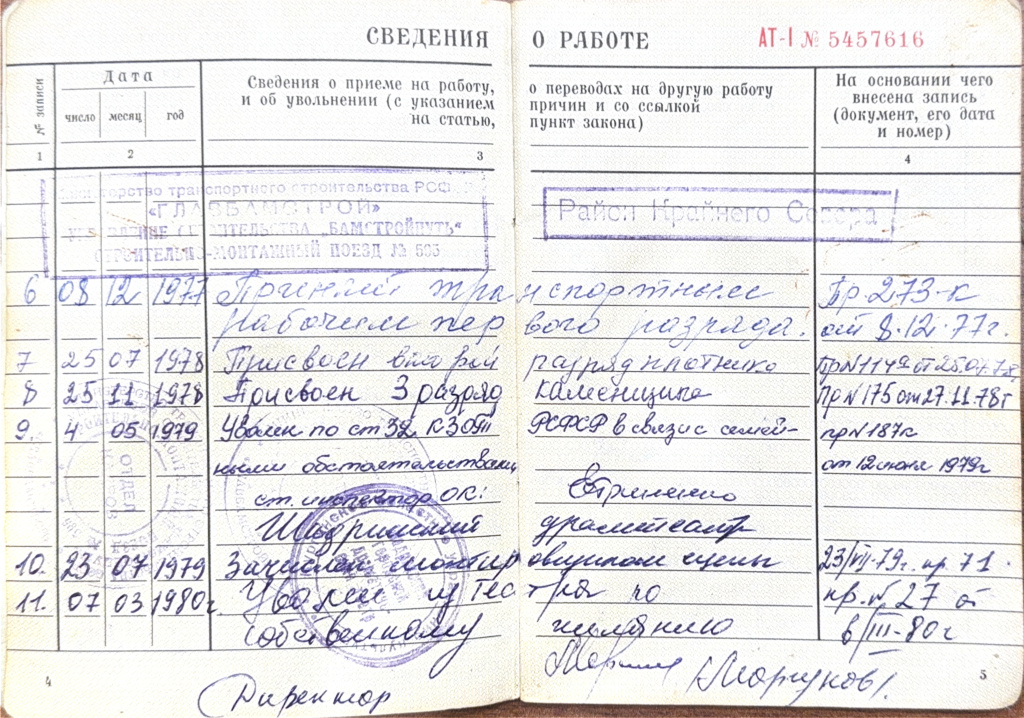 СВЕДЕНИЯ О РАБОТЕ
АТ-I № 5457616
№ записи
Дата
число месяц год
Сведения о приеме на работу, о переводах на другую работу
и об увольнении (с указанием причин и со ссылкой
на статью, пункт закона)
На основании чего
внесена запись
(документ, его дата
и номер)
1 2 3 4
транспортного строительства РСФ
«ГЛАВБАМСТРОЙ»
„БАМСТРОЙПУТЬ“
СТРОИТЕЛЬНО-МОНТАЖНЫЙ ПОЕЗД № 595
Район Крайнего Севера
6 08 12 1977 Принят транспортным Пр. 273-к
рабочим первого разряда. от 8.12.77г.
7 25 07 1978 Присвоен второй разряд плотника
8 25 11 1978 Присвоен 3 разряд каменщика Пр N 175 от 27.11.78г
9. 4 05 1979 Уволен по ст 32 КЗОТ РСФСР в связи с семей- пр N 187к
ными обстоятельствами от 12 июня 1979г
ст. инспектор ОК:
Шадринский драмтеатр
10. 23 07 1979 Зачислен монтировщиком сцены 23/VII-79г. пр. 71.
11. 07 03 1980г Уволен из театра по пр. N 27 от
собственному желанию 6/III-80г
Директор (Моршунов).
4
5